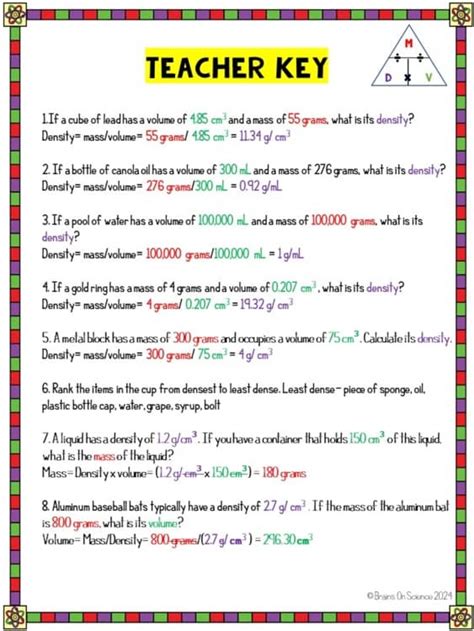 M
÷ ÷
D x V
TEACHER KEY
1.If a cube of lead has a volume of 4.85 cm³ and a mass of 55 grams, what is its density?
Density= mass/volume= 55 grams/ 4.85 cm³ = 11.34 g/ cm³
2. If a bottle of canola oil has a volume of 300 mL and a mass of 276 grams, what is its density?
Density= mass/volume= 276 grams/300 mL = 0.92 g/mL
3. If a pool of water has a volume of 100,000 mL and a mass of 100,000 grams, what is its
density?
Density= mass/volume= 100,000 grams/100,000 mL = 1 g/mL
4. If a gold ring has a mass of 4 grams and a volume of 0.207 cm³, what is its density?
Density= mass/volume= 4 grams/ 0.207 cm³ = 19.32 g/ cm³
5. A metal block has a mass of 300 grams and occupies a volume of 75 cm³. Calculate its density.
Density= mass/volume= 300 grams/ 75 cm³ = 4 g/ cm³
6. Rank the items in the cup from densest to least dense. Least dense- piece of sponge, oil,
plastic bottle cap, water, grape, syrup, bolt
7. A liquid has a density of 1.2 g/cm³. If you have a container that holds 150 cm³ of this liquid,
what is the mass of the liquid?
Mass= Density x volume= (1.2 g/cm³ x 150 cm³) = 180 grams
8. Aluminum baseball bats typically have a density of 2.7 g/ cm³ . If the mass of the aluminum bat
is 800 grams, what is its volume?
Volume= Mass/Density= 800 grams/(2.7 g/ cm³ ) = 296.30 cm³
© Brains On Science 2024